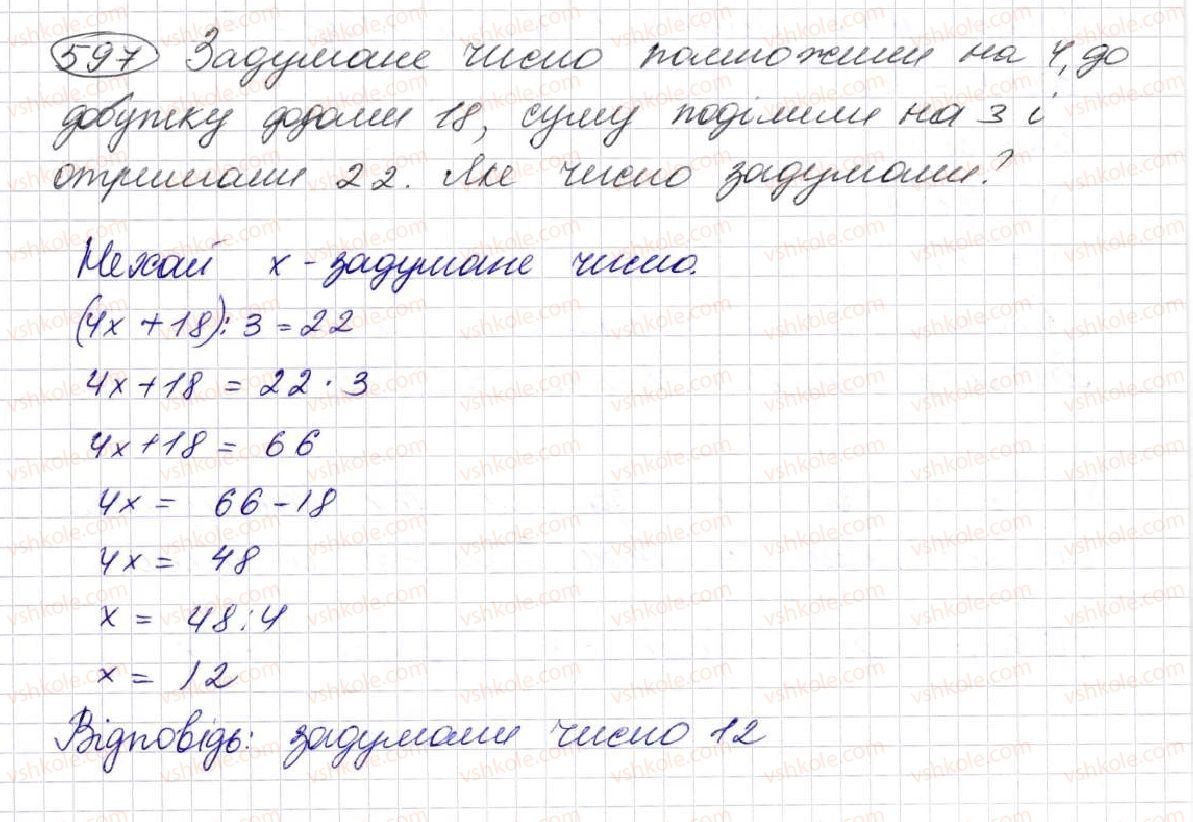 597 Задумане число помножили на 4, до
добутку додали 18, суму поділили на 3 і
отримали 22. Яке число задумали?
Нехай x - задумане число.
(4x + 18) : 3 = 22
4x + 18 = 22 · 3
4x + 18 = 66
4x = 66 - 18
4x = 48
x = 48 : 4
x = 12
Відповідь: задумали число 12